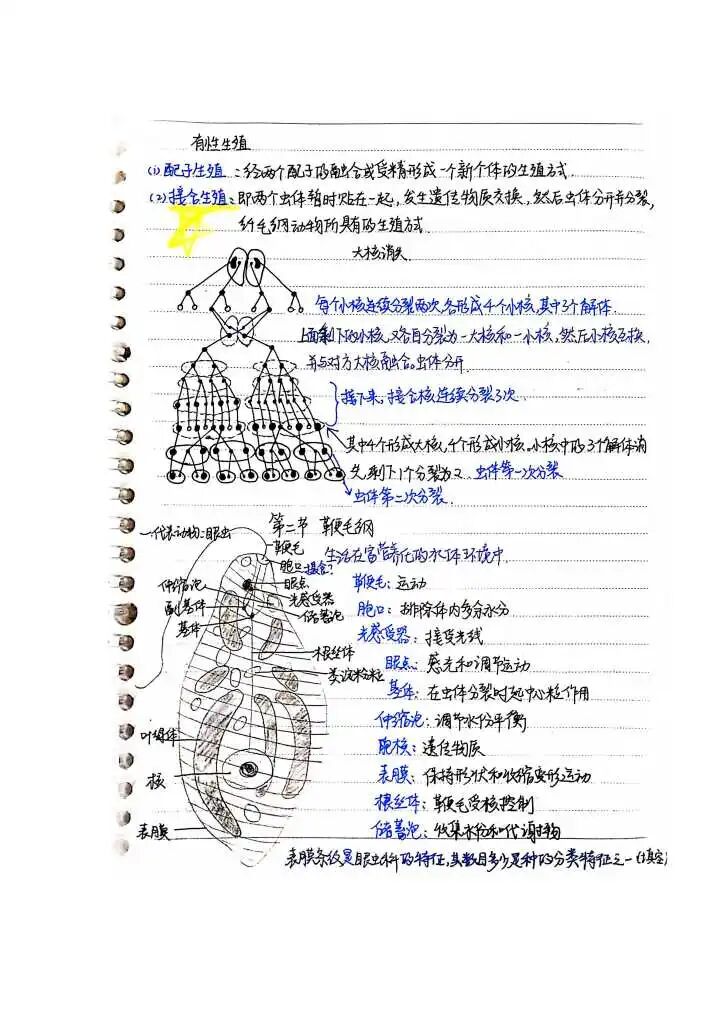 有性生殖
(1) 配子生殖：经两个配子的融合或受精形成一个新个体的生殖方式.
(2) 接合生殖：即两个虫体暂时贴在一起，发生遗传物质交换，然后虫体分开并分裂，
纤毛纲动物所具有的生殖方式.
大核消失.
每个小核连续分裂两次，各形成4个小核，其中3个解体.
上面剩下的小核，又各自分裂为一大核和一小核，然后小核互换，
并与对方大核融合。虫体分开.
接下来，接合核连续分裂3次.
其中4个形成大核，4个形成小核。小核中的3个解体消
失，剩下1个分裂为2. 虫体第一次分裂
虫体第二次分裂.
第二节 鞭毛纲
一.代表动物：眼虫
生活在富营养化的水体环境中.
鞭毛
胞口 摄食?
眼点
光感受器
储蓄泡
伸缩泡
副基体
基体
根丝体
类淀粉粒
叶绿体
核
表膜
鞭毛：运动
胞口：排除体内多余水分
光感受器：接受光线
眼点：感光和调节运动
基体：在虫体分裂时起中心粒作用
伸缩泡：调节水份平衡
胞核：遗传物质
表膜：保持形状和收缩变形运动
根丝体：鞭毛受核控制
储蓄泡：收集水份和代谢物
表膜条纹是眼虫科的特征，其数目多少是种的分类特征之一(填空)